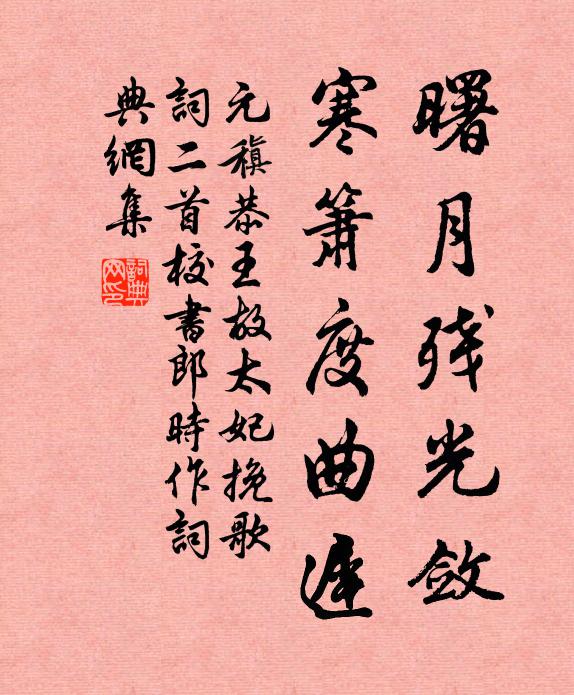 曙月残光斂
寒簫度曲遲
元稹恭王故太妃挽歌
詞二首校書郎時作詞
典網集
詞典网印